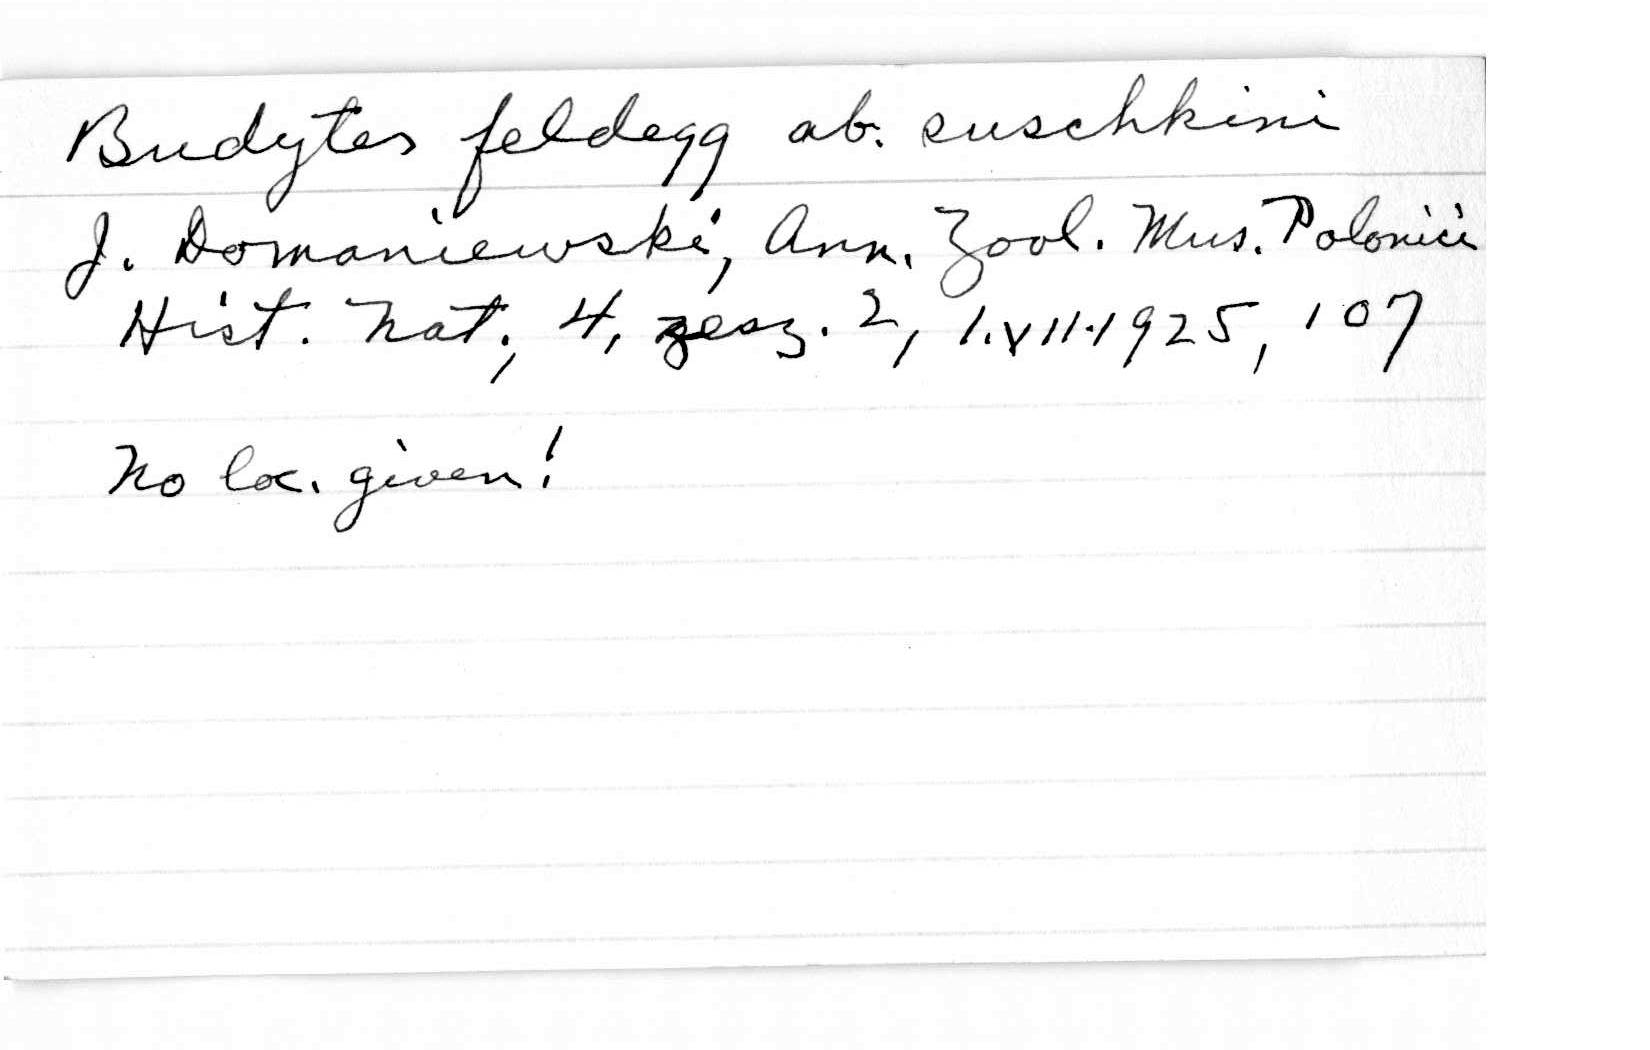 Budytes feldegg ab. suschkini
J. Domaniewski, Ann. Zool. Mus. Polonici
Hist. Nat., 4, zesz. 2, 1.VII.1925, 107
No loc. given!